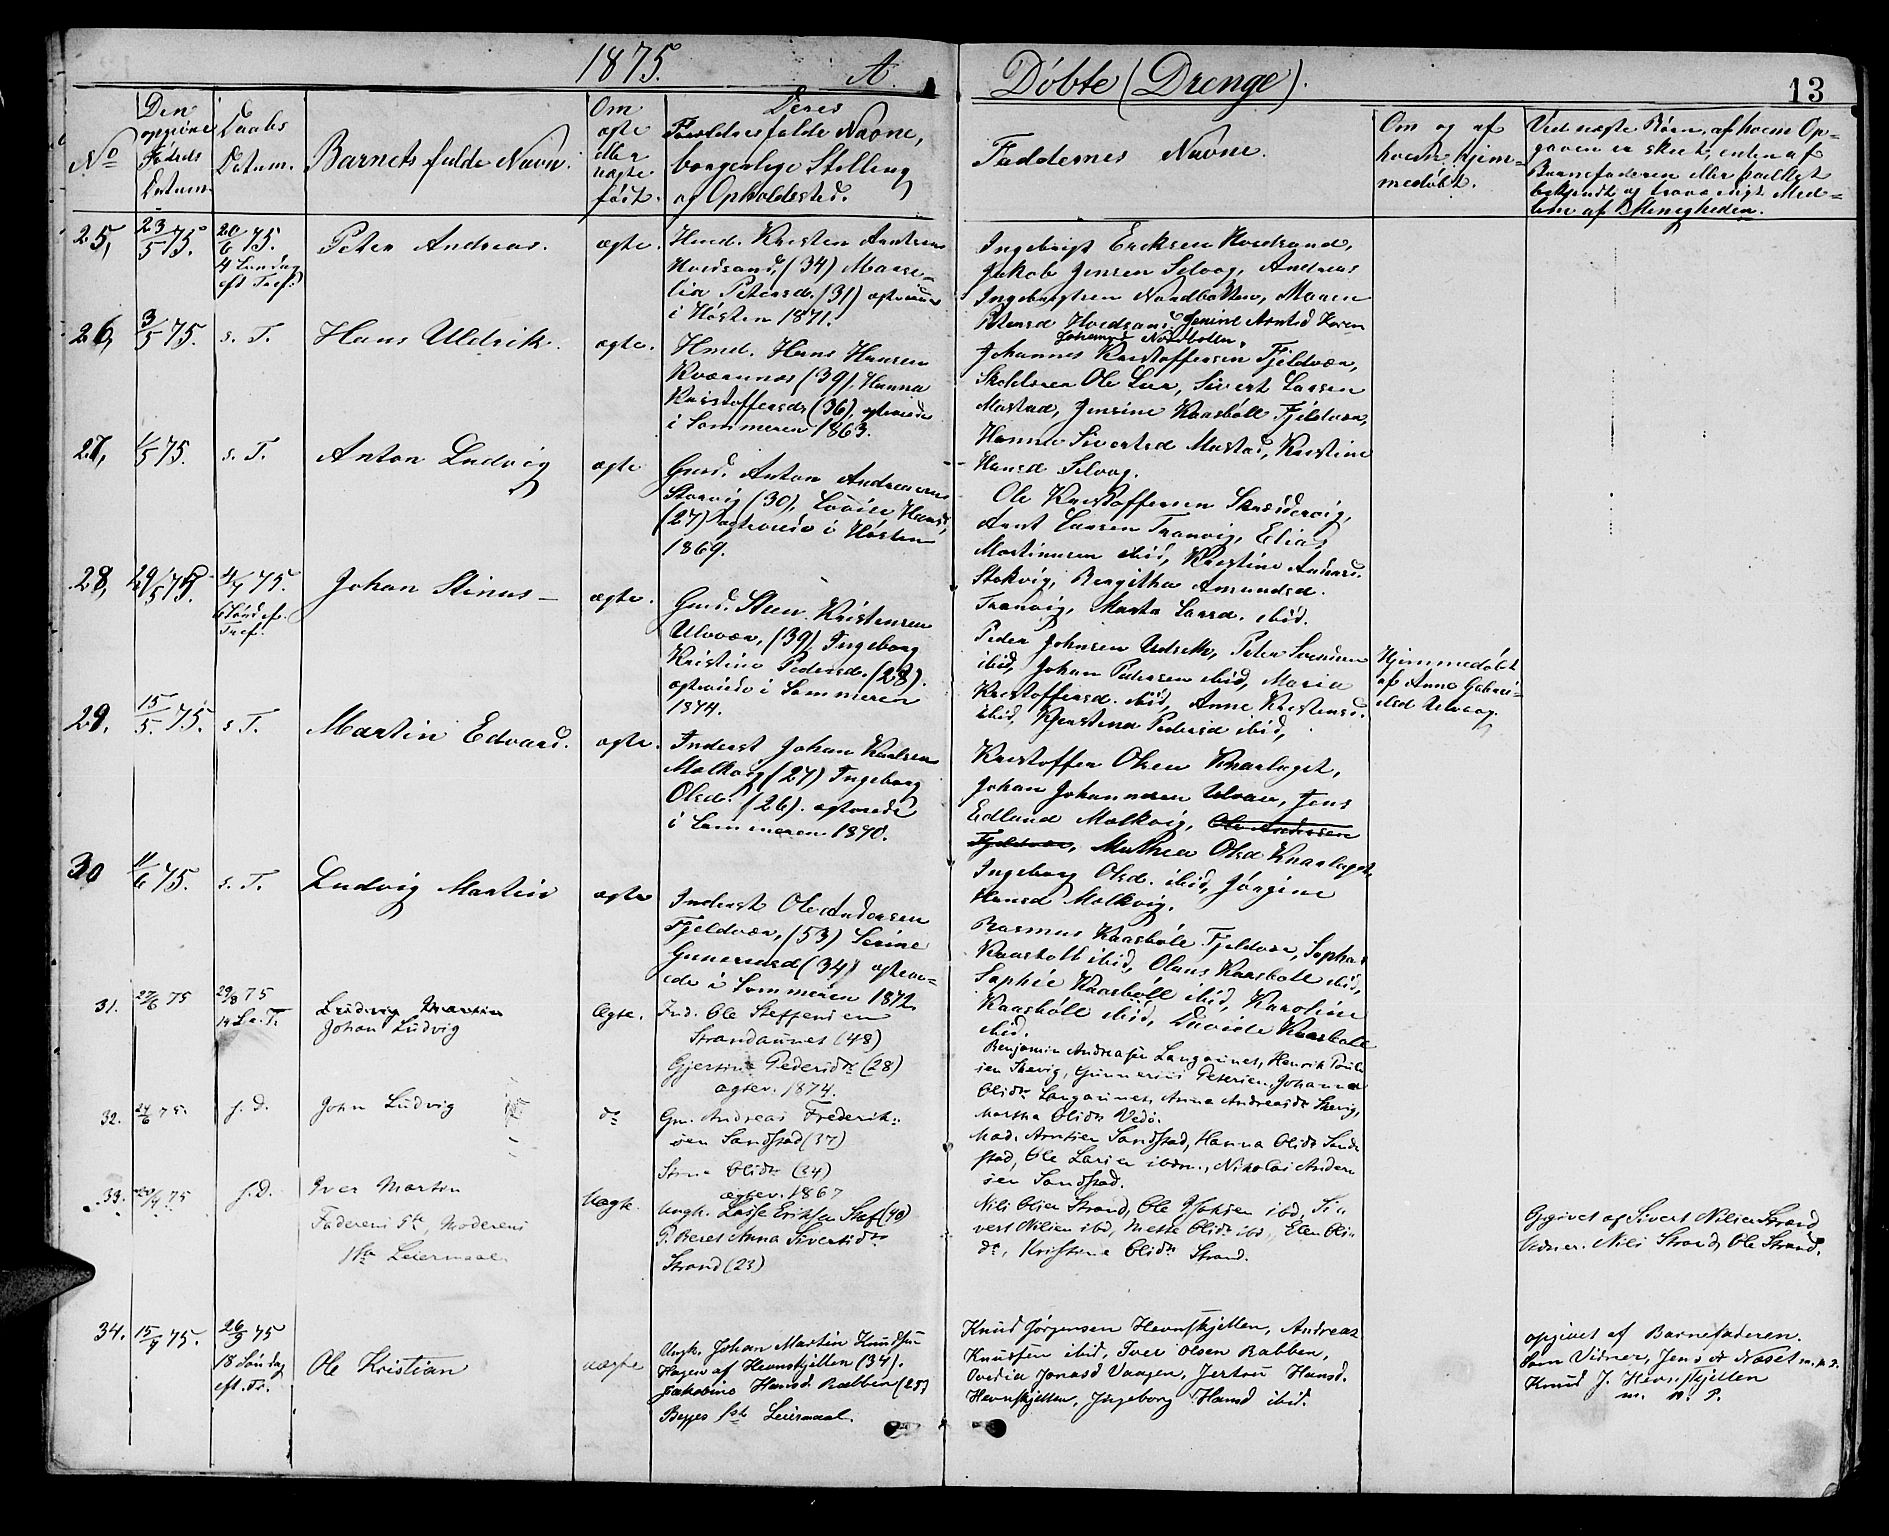 1875. A. Døbte (Drenge). 13
No
Den opgivne Fødsels Datum.
Daabs Datum.
Barnets fulde Navn.
Om ægte eller uægte født.
Deres Forældres fulde Navne, borgerlige Stilling og Opholdssted.
Faddernes Navne.
Om og af hvem hjemmedøbt.
Ved uægte Børn, af hvem Opgaven er skeet, enten af Barnefaderen eller paalidet bekjendt og troværdigt Medlem af Menigheden.
25, 23/5 75. 20/6 75. 4 Søndag eft Tref.
Peter Andreas. ægte.
Hmd. Kristen Arntsen
Hordsand, (34) Maase-
lia Petersd. (31) egteviede
i Høsten 1871.
Ingebrigt Eriksen Hordsand,
Jakob Jensen Selvog, Andreas
Ingebrigtsen Nordbotten, Maren
Petersd Hordsand, Jensine Arntsd
Johannsd Nordbotten.
26, 3/5 75. s. T.
Hans Uldrik. ægte.
Hmd. Hans Hansen
Kværnnes (39), Hanna
Kristoffersdr (36), egteviede
i Sommeren 1863.
Johannes Kristoffersen Fjeldvær,
Skolelærer Ole Lur, Sivert Larsen
Mastad, Jensine Kaasbøll Fjeldvær,
Hanna Sivertsd Mastad, Kristine
Hansd Selvog.
27, 1/5 75. s. T.
Anton Ludvig ægte
Gmd. Anton Andreasen
Storvig (30), Lovise Hansd.
(27) egteviede i Høsten
1869.
Ole Kristoffersen Skrædervig,
Arnt Larsen Tranvig, Elias
Martinusen ibid, Kristine Andersd.
Stokvig, Bergitha Amundsd.
Tranvig, Marta Larsd. ibid.
28, 29/5 75. 4/7 75. 6 Sønd ef. Tref.
Johan Stinus— ægte.
Gmd. Sten Kristensen
Ulvvær, (39), Ingeborg
Kristine Pedersd. (28).
egteviede i Sommeren
1874.
Peder Johnsen Udseth, Peter Svendsen
ibid, Johan Pedersen ibid, Maria
Kristoffersd. ibid, Anne Kristensd.
ibid, Kjerstina Pedersd ibid,
Hjemmedøbt
af Anne Gabri-
elsd Ulvvog.
29. 15/5 75. s T.
Martin Edvard. ægte.
Inderst Johan Karlsen
Molkvig (27) Ingeborg
Olsd. (26). egteviede
i Sommeren 1870.
Kristoffer Olsen Knarlaget,
Johan Johannesen Ulvær, Jens
Edlund Molkvig, Ole Andersen
Fjeldvær, Mathea Olsd Knarlaget,
Ingeborg Olsd. ibid, Jørgine
Hansd Molkvig.
30 11/6 75. s. T.
Ludvig Martin ægte
Inderst Ole Andersen
Fjeldvær, (53) Serine
Gunnersd (34) egtevi-
ede i Sommeren 1872
Rasmus Kaasbøll Fjeldvær, Sophus
Kaasbøll ibid, Olaus Kaasbøll ibid,
Sophie Kaasbøll ibid, Karoline
Kaasbøll ibid, Davida Kaasbøll
ibid.
31. 27/6 75 29/8 75 14 S. e. T.
Ludvig Martin
Johan Ludvig
Ægte.
Ind. Ole Steffensen
Strandaunet (48)
Gjertine Pedersdtr (28)
egtev. 1874.
Benjamin Andreasen Langaunet, Henrik Povel-
sen Skevig, Gunnerius Petersen, Johanna
Olsdtr Langaunet, Anna Andreasdtr Skevig,
Martha Olsdtr Vedø.
32. 24/6 75. s. D.
John Ludvig do
Gm. Andreas Frederik-
sen Sandstad (37)
Olsdtr (34)
ægtev. 1867
Mad. Arntsen Sandstad, Hanna Olsdtr Sand-
stad, Ole Larsen ibdm., Nikolai Ander-
sen Sandstad.
33. 75 s. D.
Iver Martin
Faderens 5te, Moderens
1ste Leiermaal.
Uægte.
Ungk. Lasse Eriksen Staf (40)
P. Beret Anna Sivertsdtr
Strand (23)
Nils Olsen Strand, Ole Johsen ibd, Si-
vert Nilsen ibd, Mette Olsdtr ibd, Elen Ols-
dtr, Kristine Olsdtr Strand.
Opgivet af Sivert Nilsen Strand
Vidner. Nils Strand, Ole Strand.
34. 15/7 75. 26/9 75 18 Søndag eft. Tr.
Ole Kristian uægte
Ungk. Johan Martin Knudsen
Hagen af Hevnskjellen (34).
Jakobine Hansd. Rabben (25)
Begges 1ste Leiermaal.
Knud Jørgensen Hevnskjellen, Andreas
Knudsen ibid, Iver Olsen Rabben,
Ovedia Jonasd Vaagen, Jertru Hansd.
Hevnskjellen, Ingeborg Hansd ibid.
opgivet af Barnefaderen.
Som Vidner, Jens Næset m. p. P.
Knud J. Hevnskjellen
m. p. P.